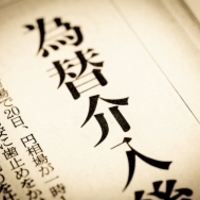 為替介入
場で20日、円相場が一時
に歯止めをか